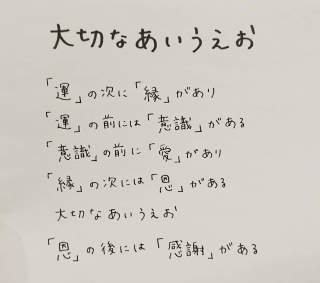 大切なあいうえお
「運」の次に「縁」があり
「運」の前には「意識」がある
「意識」の前に「愛」があり
「縁」の次には「恩」がある
大切なあいうえお
「恩」の後には「感謝」がある